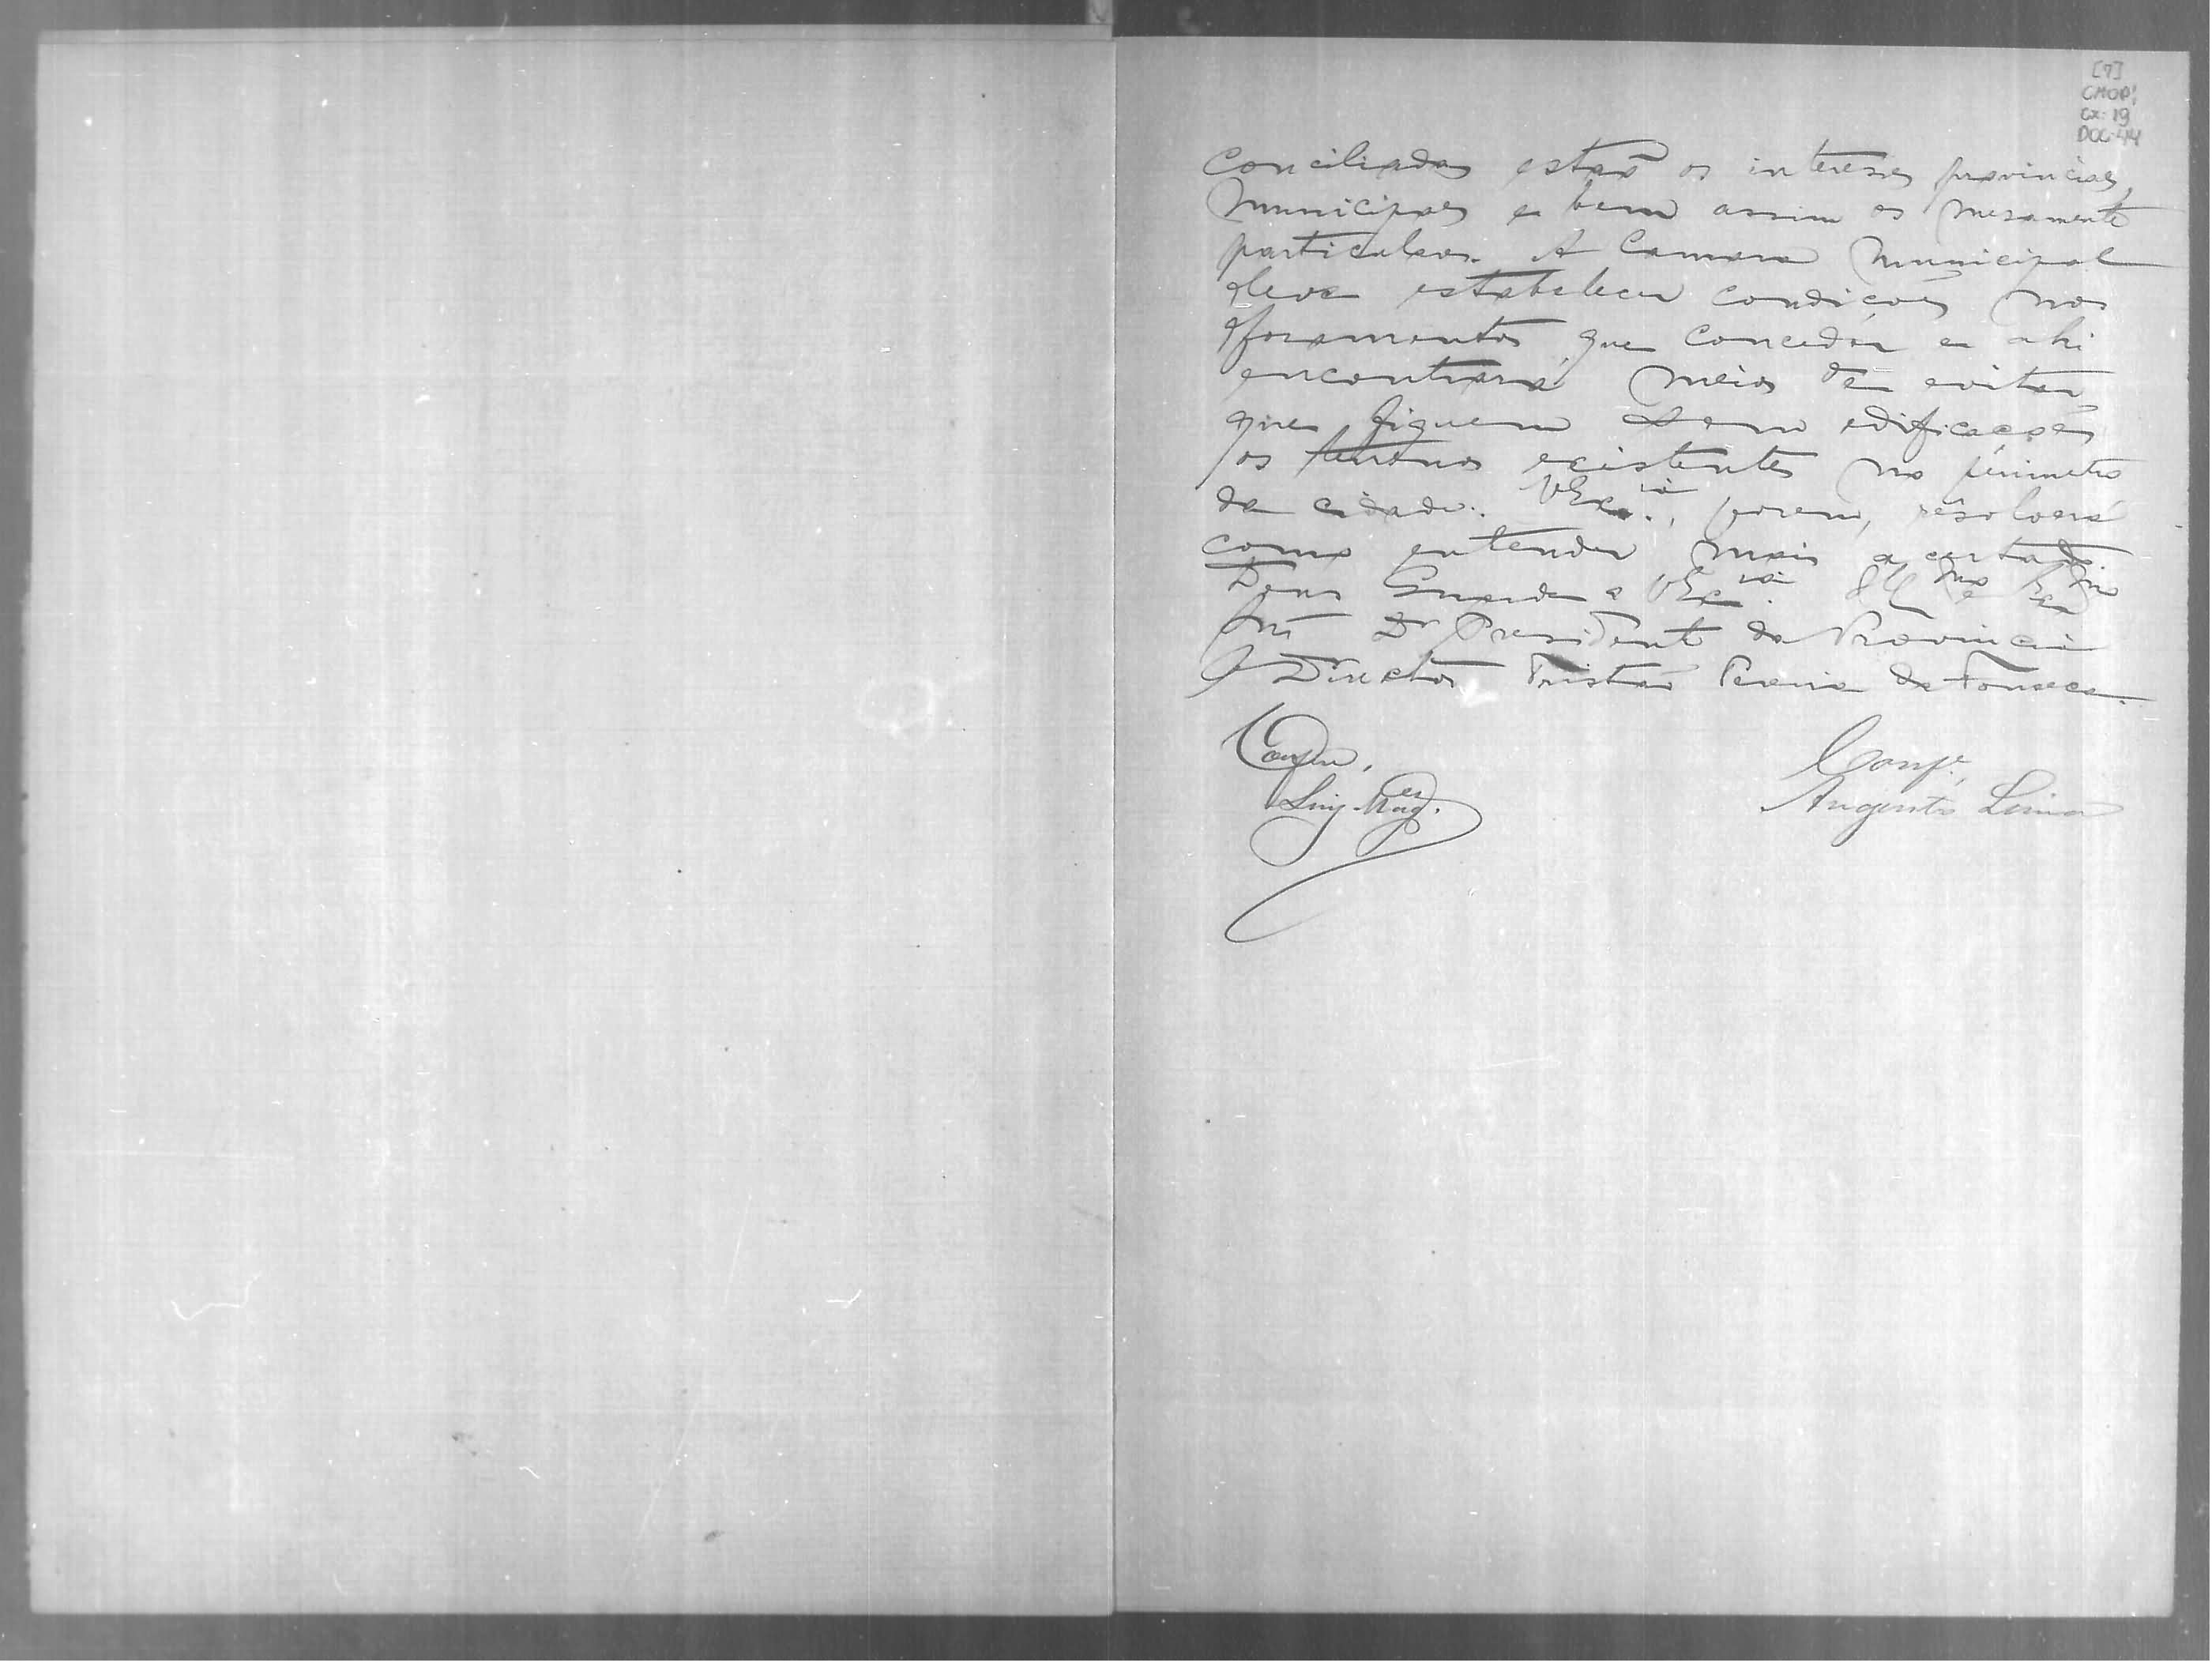 [7]
CMOP;
CX-19
DOC-44
Conciliados estão os interesses provinciaes,
Municipaes e bem assim os meramente
particulares. A Camara Municipal
deve estabelecer condições nos
aforamentos que conceder e ahi
encontrará meios de evitar
que fiquem sem edificações
os terrenos existentes no perimetro
da cidade. VExcia., porem, resolverá
como entender mais acertado.
Deus Guarde a VExcia. Illmo e Exmo
Snr Dr Presidente da Provincia
O Director Tristão Pereira da Fonseca.
Confere,
Luiz Mages.
Confe.,
Augusto Lima